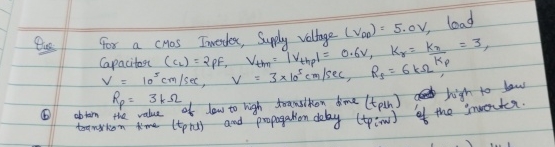 Que For a CMOS Inverter, Supply voltage (VDD) = 5.0V, load
Capacitor (CL) = 2PF, Vthn = |Vthp| = 0.6V, Kr = Kn/Kp = 3,
V = 10⁵ cm/sec, V = 3×10⁵ cm/sec, Rs = 6kΩ
Rp = 3kΩ
b obtain the value of low to high transition time (tpLh) high to low
transition time (tphl) and propagation delay (tpinv) of the inverter.